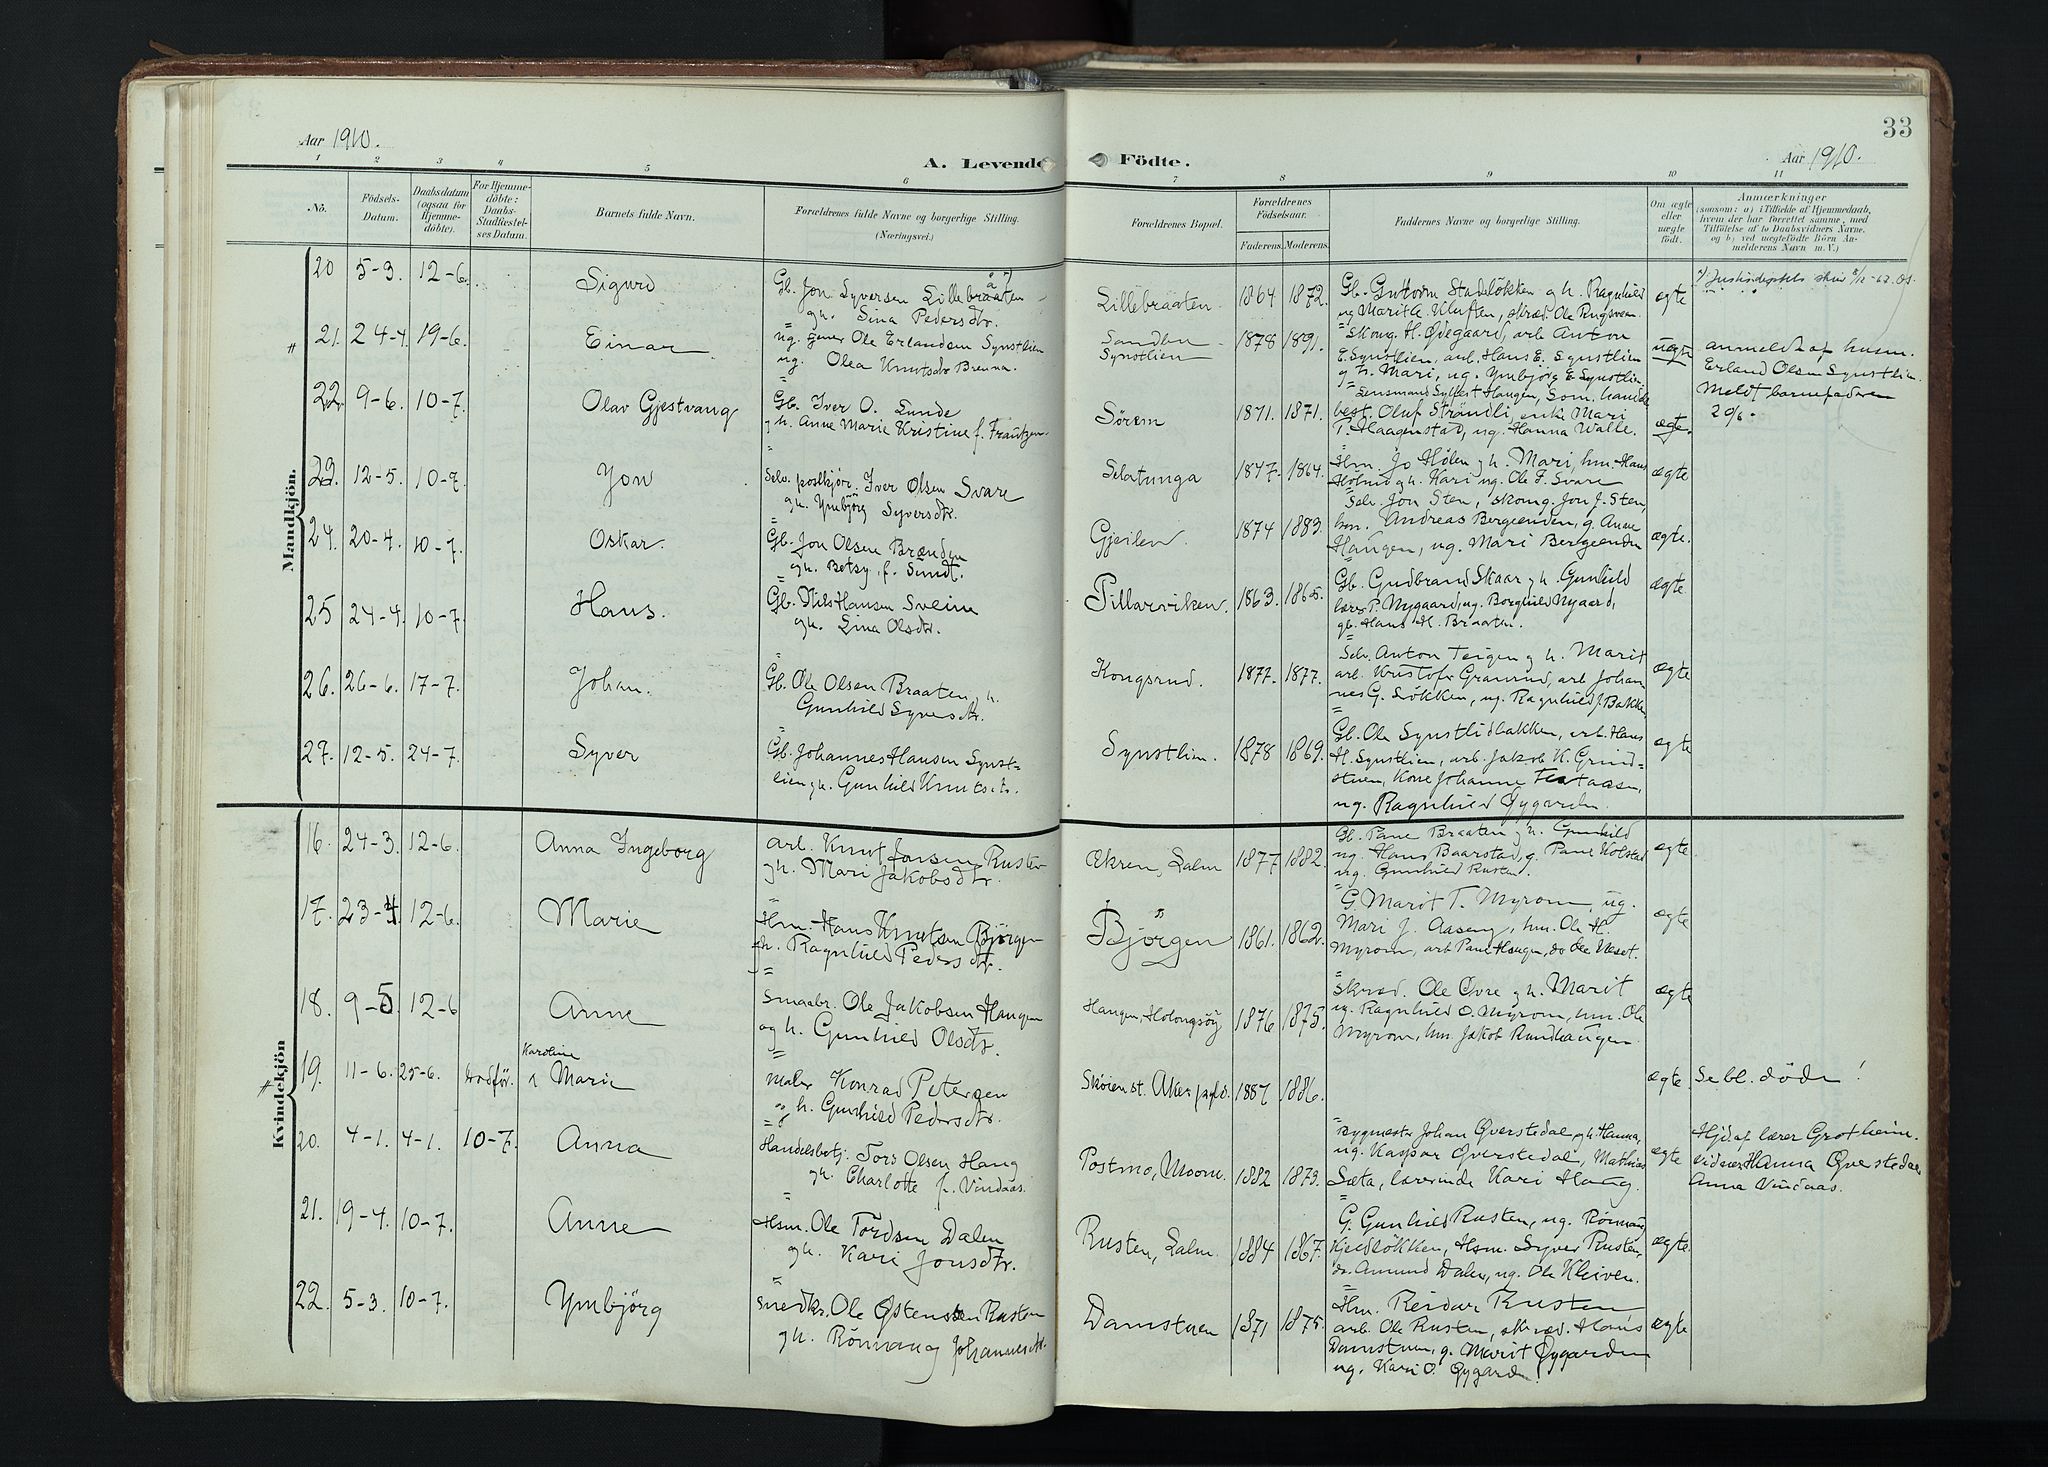 33
Aar 1910.
A. Levende Födte.
Aar 1910.
1 2 3 4 5 6 7 8 9 10 11
No.
Födsels-Datum.
Daabsdatum (ogsaa for Hjemme-döbte).
For Hjemme-döbte: Daabs-Stadfæstel-ses Datum.
Barnets fulde Navn.
Forældrenes fulde Navne og borgerlige Stilling.
(Næringsvei.)
Forældrenes Bopæl.
Forældrenes Födselsaar.
Faderens. Moderens.
Faddernes Navne og borgerlige Stilling.
Om ægte eller uægte födt.
Anmærkninger
(saasom: a) i Tilfælde af Hjemmedaab,
hvem der har forrettet samme, med
Tilföielse af to Daabsvidners Navne.
og b) ved uægtefödte Börn An-
melderens Navn m. V.)
Mandkjön.
20 5-3. 12-6. Sigurd
Gb. Jon Syversen Lillebraaten
gh. Sina Pedersdtr.
Lillebraaten. 1864 1872.
Gb. Guttorm Stadeløkken gh. Ragnhild
ug Marit Uluften, skræd. Ole Rugsveen
ægte
21. 24-4. 19-6. Einar.
ug. Ole Erlandsen Synstlien
ug. Olea Knutsdtr Brenna.
Synstlien 1878 1891.
Skomg. H. Ødegaard, arb. Anton
E. Synstlien, arb. Hans E. Synstlien
gh. Mari, ug. Ymbjörg E. Synstlien
uægte
anmeldt af husm.
Erland Olsen Synstlien.
Meldt barnefaderen
20/6.
22. 9-6. 10-7. Olav Gjestvang
Gb. Iver O. Lunde
gh. Anne Marie Kristine f. Frantzen.
Sörem 1871. 1871.
Lensmand Sylfest Haugen,
best. Oluf Strandli, enke Mari
T. Haagenstad, ug. Hanna Walle.
ægte.
23. 12-5. 10-7. Jon
Selv. postkjör. Iver Olsen Svare
gh. Ymbjörg Syversdtr.
Selatunga 1847. 1864.
Hm. Jo Hølen gh. Mari, hm. Hans
gh. Kari ug. Ole I. Svare
Selv. Jon Sten, skomg. Jon J. Sten,
ægte
24. 20-4. 10-7. Oskar.
Gb. Jon Olsen Brænden
gh. Betsy f. Sundt.
Gjeilen. 1874 1883.
hm. Andreas Bergeenden, g. Anne
Haugen, ug. Mari Bergeenden
ægte.
25 24-4. 10-7. Hans.
Gb. Nils Hansen Sveine
gh. Lina Olsdtr.
Pillarviken. 1863. 1865.
Gb. Gudbrand Skaar gh. Gunhild
lærer P. Nygaard, ug. Borghild Nygaard,
gb. Hans H. Braaten.
ægte.
26. 26-6. 17-7. Johan.
Gb. Ole Olsen Braaten gh.
Gunhild Syversdtr.
Kongsrud. 1877. 1877.
Selv. Anton Teigen gh. Marit
arb. Kristofer Granrud, arb. Johan-
nes G. Løkken, ug. Ragnhild J. Bakken
ægte
27. 12-5. 24-7. Syver
Gb. Johannes Hansen Synst-
lien gh. Gunhild Knutsdtr.
Synstlien. 1878 1869.
Gb. Ole Synstlidbakken, arb. Hans
H. Synstlien, arb. Jakob K. Grind-
stuen, Kone Johanne
ug. Ragnhild Øygarden.
ægte
Kvindekjön
16. 24-3. 12-6. Anna Ingeborg
arb. Knut Jonsen Rusten
gh. Mari Jakobsdtr.
Ekren, Lalm 1877 1882.
Gb. Pane Braaten gh. Gunhild
ug. Hans Baarstad, g. Pane Kolstad
ug. Gunhild Rusten.
ægte
17. 23-4. 12-6. Marie
Hm. Hans Knutsen Björgen
gh. Ragnhild Pedersdtr.
Björgen 1861. 1862.
G. Marit T. Myrom, ug.
Mari J. Aaseng, hm. Ole H.
Myrom, arb Pane Haugen, do Ole Næset.
ægte
18. 9-5. 12-6 Anne
Smaabr. Ole Jakobsen Haugen
og h. Gunhild Olsdtr.
Haugen, Holongsöy 1876 1875.
Skræd. Ole Øvre gh. Marit
ug. Ragnhild O. Myrom, hm. Ole
Myrom, hm. Jakob Rundhaugen.
ægte
19. 11-6. 25-6. Karoline
Marie
Maler Konrad Petersen
gh. Gunhild Pedersdtr.
Skøien st. Aker 1887 1886.
ægte Se bl. döde!
20. 4-1. 4-1. 10-7. Anna
Handelsbetj. Tors Olsen Haug
gh. Charlotte f. Vindaas.
Postmo, Moen. 1882 1873.
Bygmester Johan Øverstedal, gh. Hanna,
ug. Kaspar Øverstedal, Mathias
Sæta, lærerinde Kari Haug.
ægte
Hjd af lærer Grotheim.
vidner Hanna Øverstedal
Anna Vindaas.
21. 19-4. 10-7. Anne
Hsm. Ole Tordsen Dalen
gh. Kari Jonsdtr.
Rusten, Lalm. 1884 1867.
G. Gunhild Rusten, ug. Rönnaug
Kjeldløkken, Hsm. Syver Rusten,
do. Amund Dalen, ug. Ole Kleiven.
ægte.
22. 5-3. 10-7. Ymbjörg
Snedkr. Ole Østensen Rusten
gh. Rönnaug Johannesdtr.
Damstuen 1871 1875.
Hm. Reidar Rusten
arb. Ole Rusten, skræd. Hans
Damstuen, g. Marit Øygarden
ug. Kari O. Øygarden.
ægte